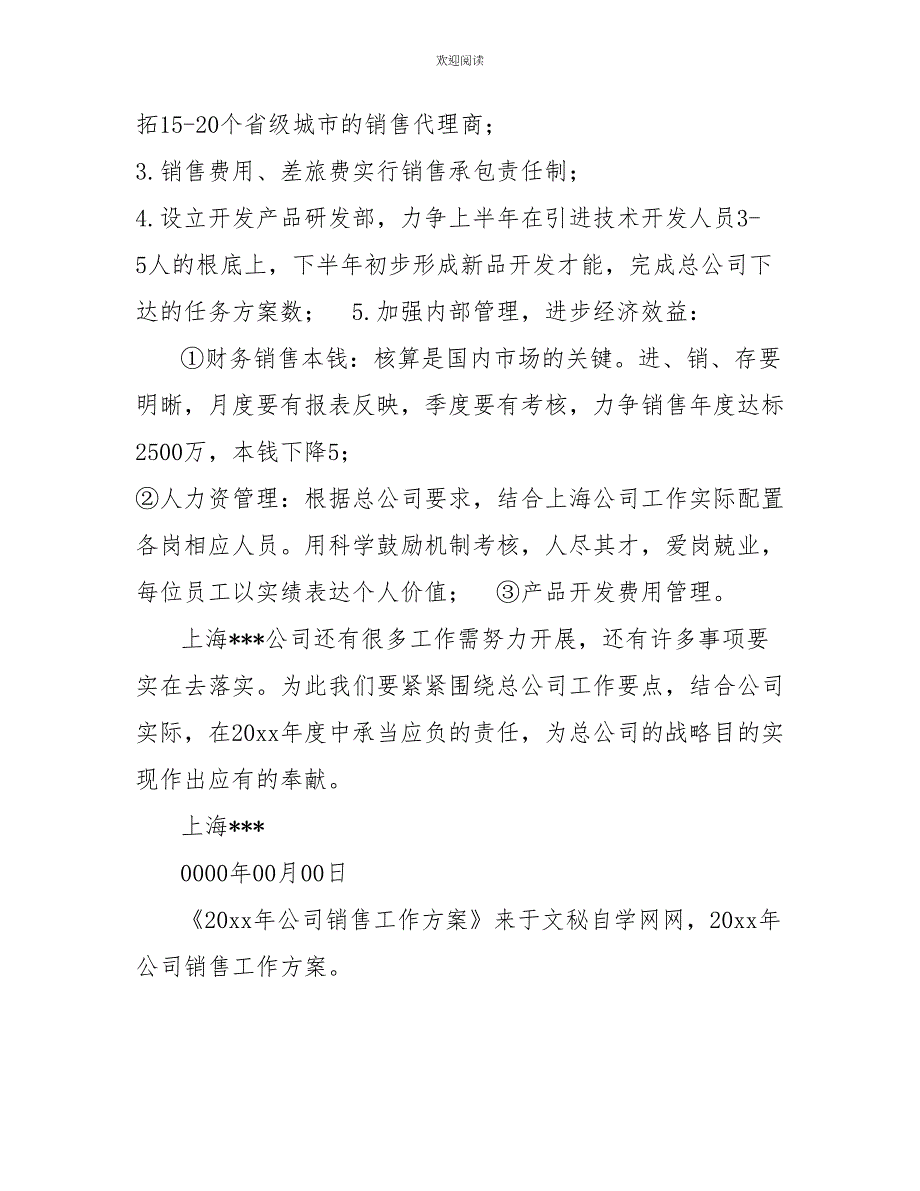 欢迎阅读
拓15-20个省级城市的销售代理商；
3.销售费用、差旅费实行销售承包责任制；
4.设立开发产品研发部，力争上半年在引进技术开发人员3-
5人的根底上，下半年初步形成新品开发才能，完成总公司下
达的任务方案数；　5.加强内部管理，进步经济效益：
①财务销售本钱：核算是国内市场的关键。进、销、存要
明晰，月度要有报表反映，季度要有考核，力争销售年度达标
2500万，本钱下降5；
②人力资管理：根据总公司要求，结合上海公司工作实际配置
各岗相应人员。用科学鼓励机制考核，人尽其才，爱岗兢业，
每位员工以实绩表达个人价值；　③产品开发费用管理。
上海***公司还有很多工作需努力开展，还有许多事项要
实在去落实。为此我们要紧紧围绕总公司工作要点，结合公司
实际，在20xx年度中承当应负的责任，为总公司的战略目的实
现作出应有的奉献。
上海***
0000年00月00日
《20xx年公司销售工作方案》来于文秘自学网网，20xx年
公司销售工作方案。